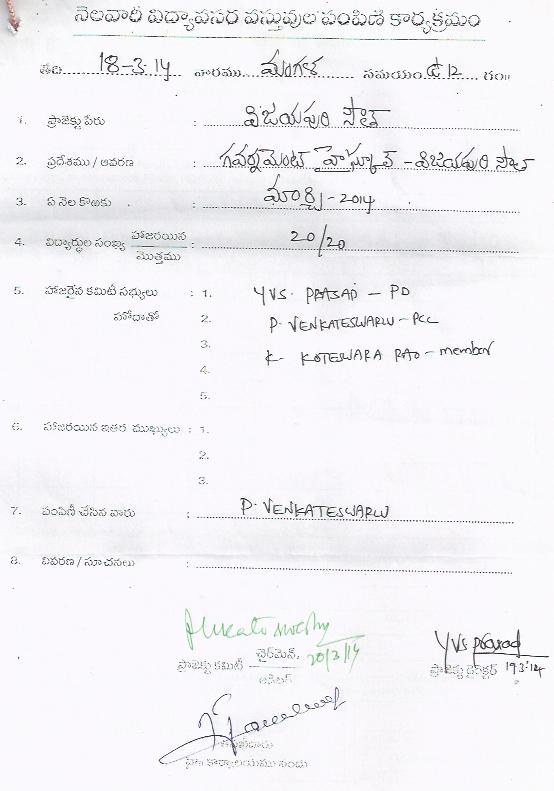 నెలవారీ విద్యావసర వస్తువుల పంపిణీ కార్యక్రమం
తేది 18-3-14 వారము మంగళ సమయం 12 గం॥
1. ప్రాజెక్టు పేరు : విజయపురి సౌత్
2. ప్రదేశము / ఆవరణ : గవర్నమెంట్ హైస్కూల్ - విజయపురి సౌత్
3. ఏ నెల కొఱకు : మార్చి - 2014
4. విద్యార్థుల సంఖ్య హాజరయిన / మొత్తము : 20/20
5. హాజరైన కమిటీ సభ్యులు : 1. YVS. PRASAD - PD
హోదాతో 2. P. VENKATESWARLU - PCC
3. K. KOTESWARA RAO - member
4.
5.
6. హాజరయిన ఇతర ముఖ్యులు : 1.
2.
3.
7. పంపిణీ చేసిన వారు : P. VENKATESWARLU
8. వివరణ / సూచనలు :
ప్రాజెక్టు కమిటీ ఛైర్‌మెన్, 20/3/14
ఆడిటర్
YVS Prasad
ప్రాజెక్టు డైరెక్టర్ 19.3.14